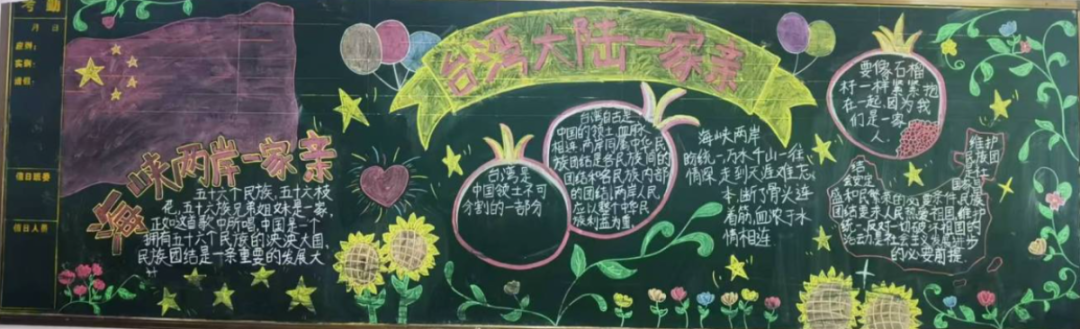 考勤
应到：
实到：
值日班委
值日人员
海峡两岸一家亲
五十六个民族，五十六枝
花，五十六族兄弟姐妹是一家，
正如这首歌中所唱，中国是一个
拥有五十六个民族的泱泱大国，
民族团结是一条重要的发展大
计
台湾大陆一家亲
台湾是
中国领土不可
分割的一部分
台湾自古是
中国的领土，血脉
相连，两岸同属中华民
族，团结是各民族间的
团结和各民族内部
的团结，两岸人民
应以整个中华民
族利益为重
海峡两岸
盼统一，万水千山一往
情深，走到天涯难忘
本，断了骨头连
着筋，血浓于水
情相连
要像石榴
籽一样紧紧抱
在一起，因为我
们是一家
人
维护
民族
团
结
是
盛
团结是
统一，反对
活动，是社会
的必要前提